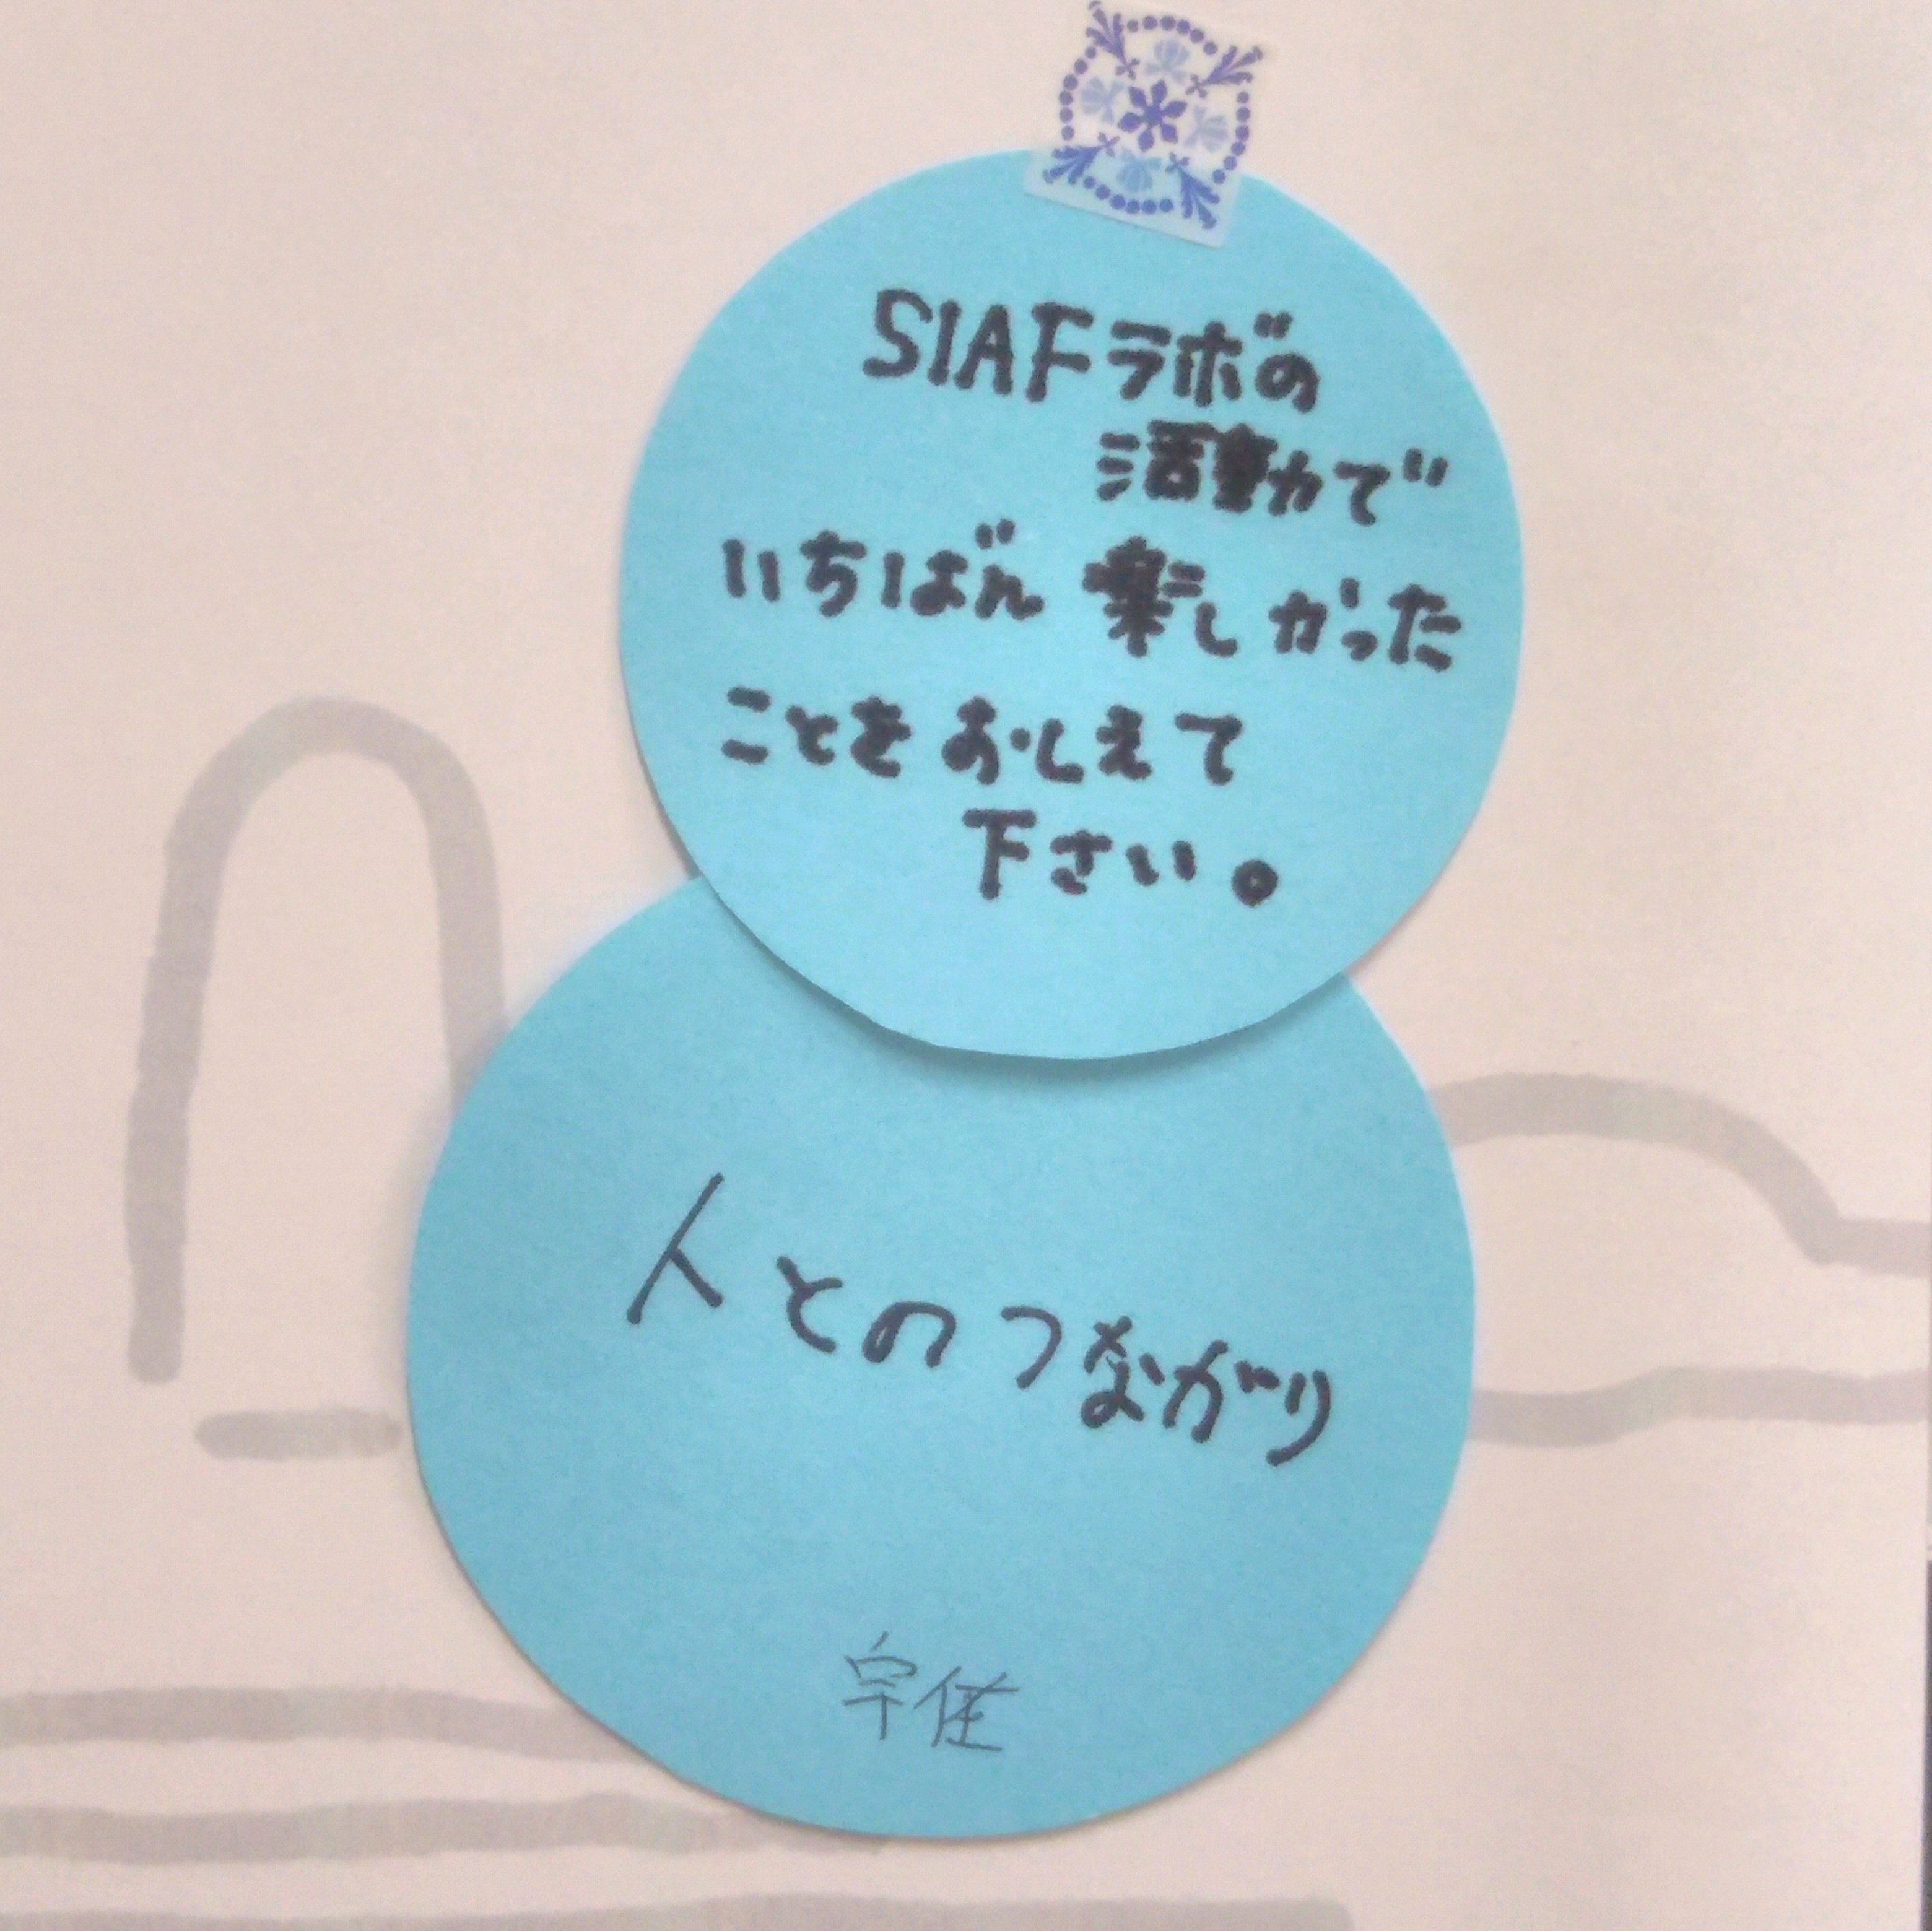 SIAFラボの
活動で
いちばん 楽しかった
ことを おしえて
下さい。
人とのつながり